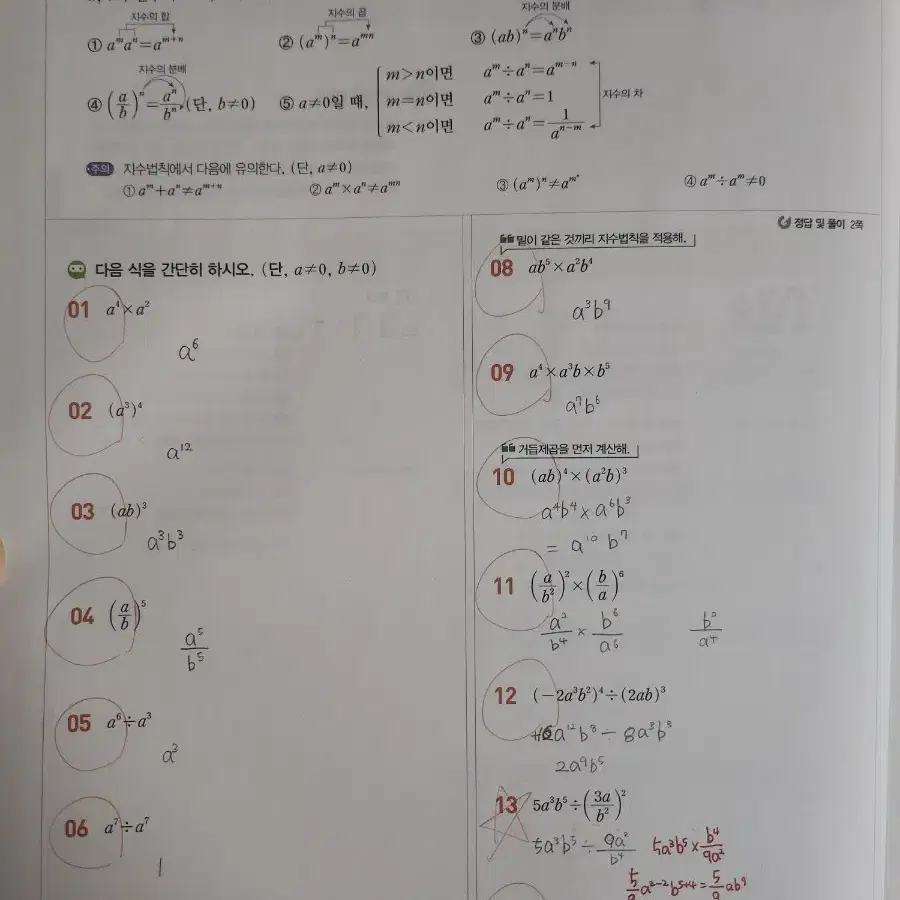 지수의 합
① aᵐaⁿ=aᵐ⁺ⁿ
지수의 곱
② (aᵐ)ⁿ=aᵐⁿ
지수의 분배
③ (ab)ⁿ=aⁿbⁿ
지수의 분배
④ (a/b)ⁿ=aⁿ/bⁿ (단, b≠0)
⑤ a≠0일 때,
m>n이면 aᵐ÷aⁿ=aᵐ⁻ⁿ
m=n이면 aᵐ÷aⁿ=1
m<n이면 aᵐ÷aⁿ=1/aⁿ⁻ᵐ
지수의 차
주의 지수법칙에서 다음에 유의한다. (단, a≠0)
① aᵐ+aⁿ≠aᵐ⁺ⁿ
② aᵐ×aⁿ≠aᵐⁿ
③ (aᵐ)ⁿ≠a^(mⁿ)
④ aᵐ÷aᵐ≠0
정답 및 풀이 2쪽
다음 식을 간단히 하시오. (단, a≠0, b≠0)
01 a⁴×a²
a⁶
02 (a³)⁴
a¹²
03 (ab)³
a³b³
04 (a/b)⁵
a⁵/b⁵
05 a⁶÷a³
a³
06 a⁷÷a⁷
1
밑이 같은 것끼리 지수법칙을 적용해.
08 ab⁵×a²b⁴
a³b⁹
09 a⁴×a³b×b⁵
a⁷b⁶
거듭제곱을 먼저 계산해.
10 (ab)⁴×(a²b)³
a⁴b⁴×a⁶b³
= a¹⁰b⁷
11 (a/b²)²×(b/a)⁶
a²/b⁴ × b⁶/a⁶ b²/a⁴
12 (−2a³b²)⁴÷(2ab)³
16a¹²b⁸÷8a³b³
2a⁹b⁵
13 5a³b⁵÷(3a/b²)²
5a³b⁵÷9a²/b⁴ 5a³b⁵×b⁴/9a²
5/9a³⁻²b⁵⁺⁴=5/9ab⁹